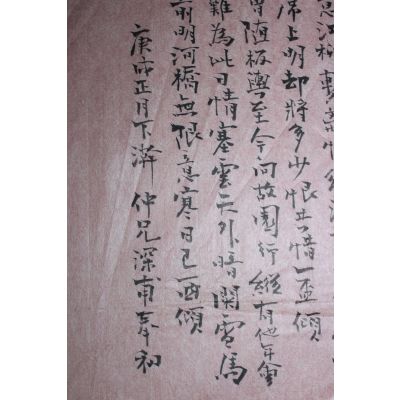 席上明却將多少恨惜一盃傾
曾随板輿至今向故園行縱有他年會
難為此日情塞雲天外暗關雪馬
前明河橋無限意寒日已西傾
庚戌正月下澣 仲兄深甫奉初